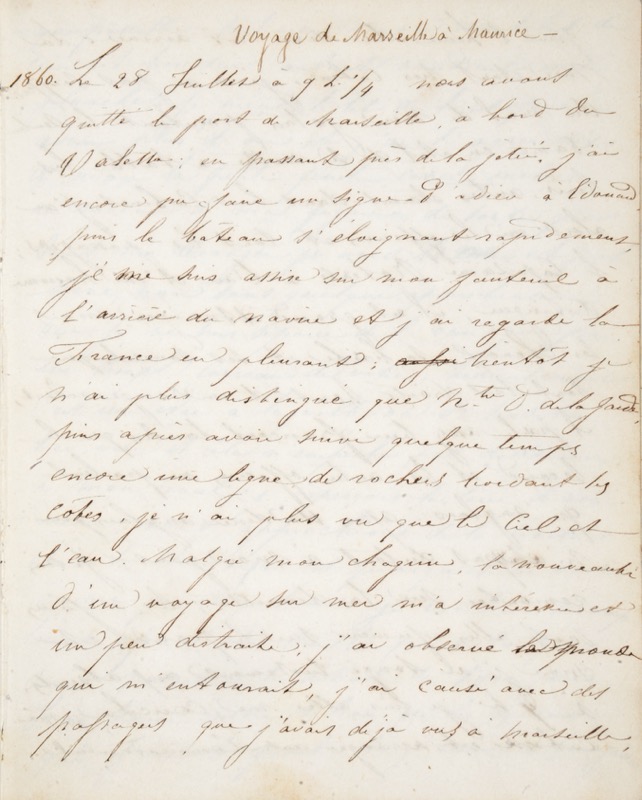 Voyage de Marseille à Maurice —
1860. Le 28 Juillet à 9 h. 1/4 nous avons
quitté le port de Marseille, à bord du
Valetta; en passant près de la jetée, j'ai
encore pu faire un signe d'adieu à Edouard
puis le bateau s'éloignant rapidement,
je me suis assise sur mon fauteuil à
l'arrière du navire et j'ai regardé la
France en pleurant; aussi bientôt je
n'ai plus distingué que N.tre D. de la Garde,
puis après avoir suivi quelque temps
encore une ligne de rochers bordant les
côtes, je n'ai plus vu que le Ciel et
l'eau. Malgré mon chagrin, la nouveauté
d'un voyage sur mer m'a intéressée et
un peu distraite; j'ai observé le monde
qui m'entourait, j'ai causé avec des
passagers que j'avais déjà vus à Marseille,